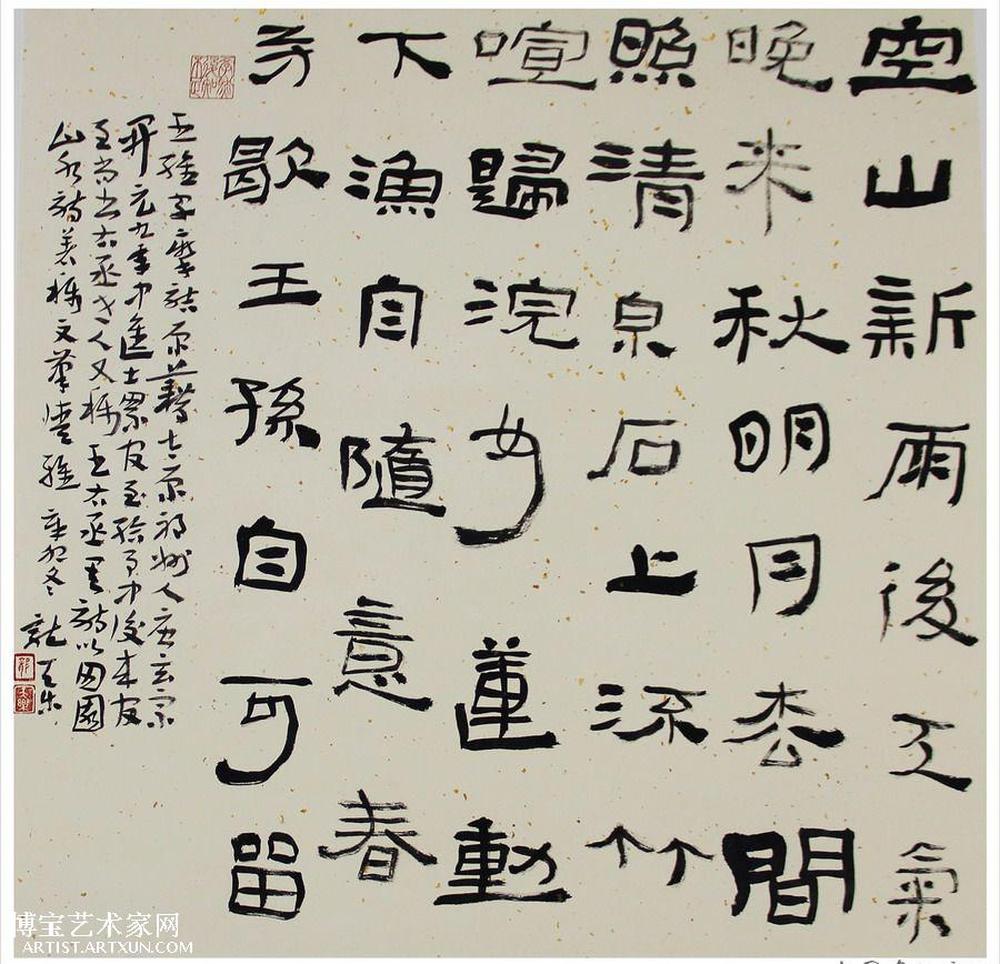 空山新雨後天氣
晚来秋明月松間
照清泉石上流竹
喧歸浣女蓮動
下漁舟隨意春
芳歇王孫自可留
王維字摩詰原籍士原祁州人唐玄宗
開元九年中進士累官至給事中後来官
至尚书右丞人又稱王右丞其詩以田園
山水詩著稱文筆雅 辛卯冬
博宝艺术家网
ARTIST.ARTXUN.COM